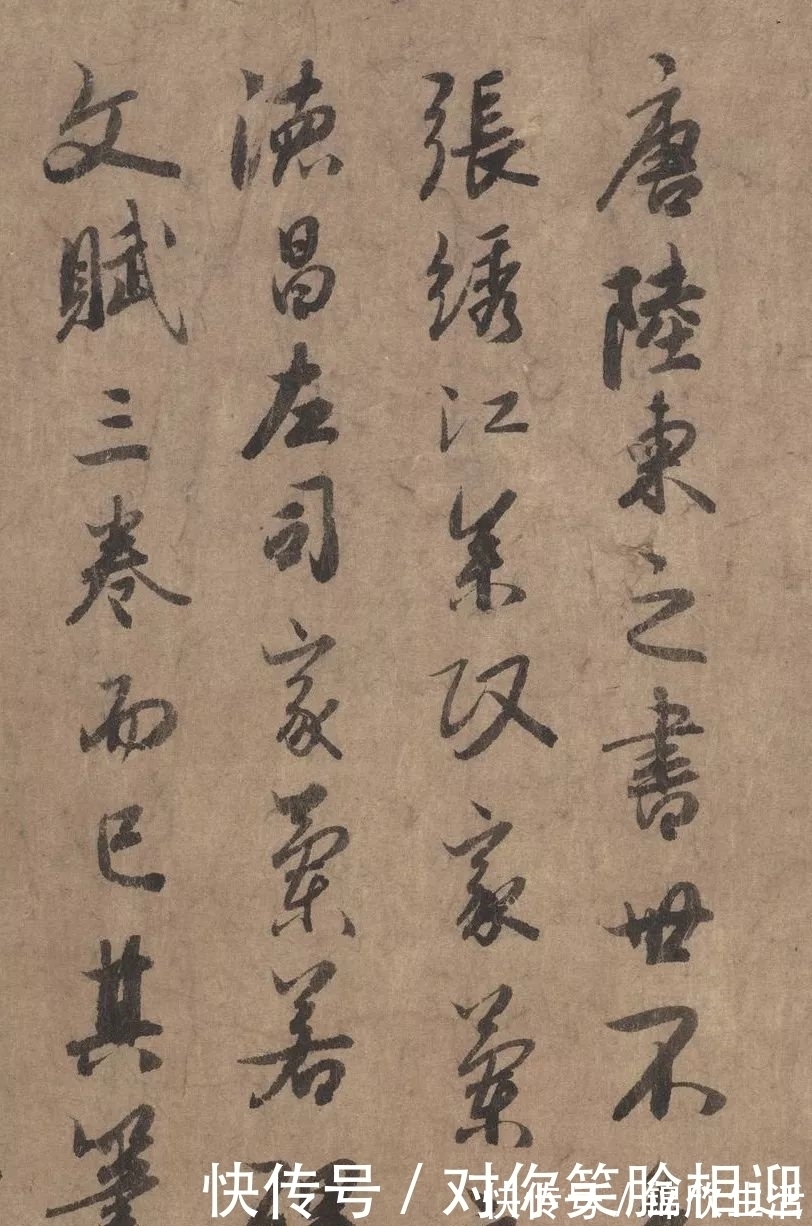 唐陸柬之書世不
張綉江參政家蘭
德昌左司家蘭若
文賦三卷而已其筆
快传号／对你笑脸相迎
快传号／